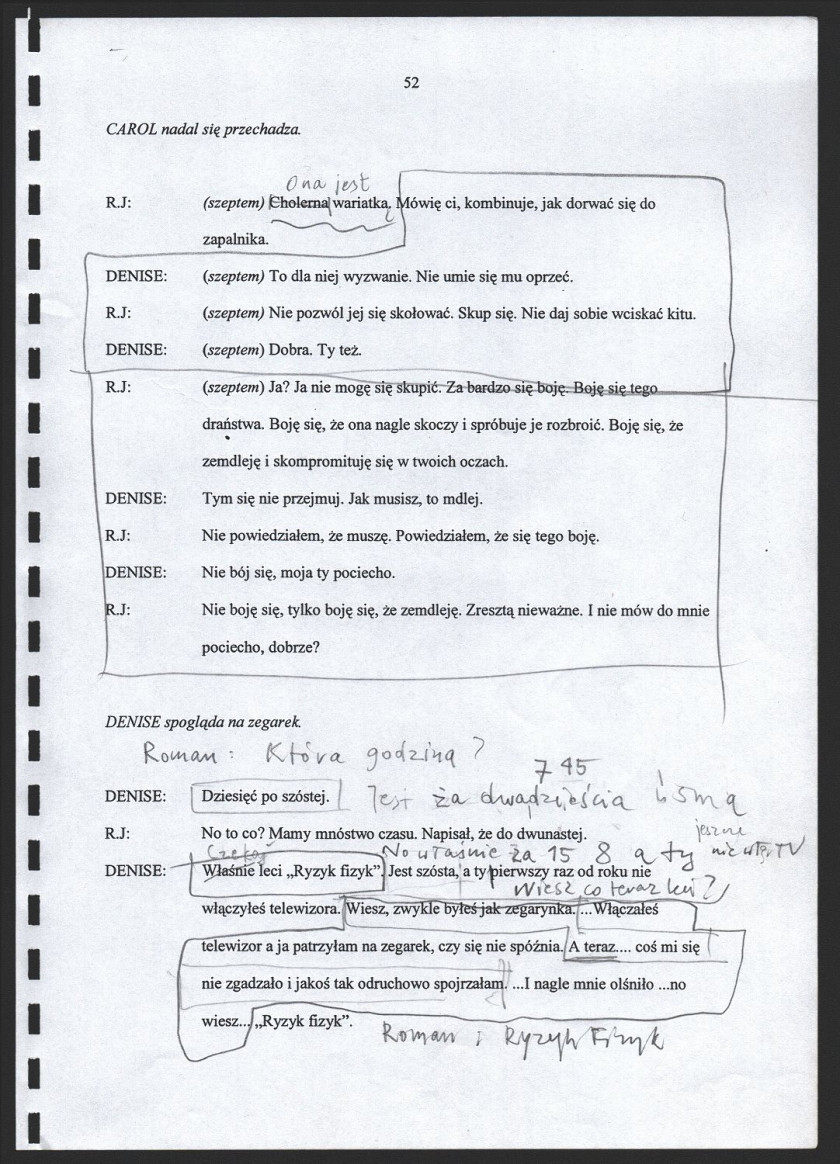 52
CAROL nadal się przechadza.
Ona jest
R.J: (szeptem) Cholerna wariatka. Mówię ci, kombinuje, jak dorwać się do
zapalnika.
DENISE: (szeptem) To dla niej wyzwanie. Nie umie się mu oprzeć.
R.J: (szeptem) Nie pozwól jej się skołować. Skup się. Nie daj sobie wciskać kitu.
DENISE: (szeptem) Dobra. Ty też.
R.J: (szeptem) Ja? Ja nie mogę się skupić. Za bardzo się boję. Boję się tego
draństwa. Boję się, że ona nagle skoczy i spróbuje je rozbroić. Boję się, że
zemdleję i skompromituję się w twoich oczach.
DENISE: Tym się nie przejmuj. Jak musisz, to mdlej.
R.J: Nie powiedziałem, że muszę. Powiedziałem, że się tego boję.
DENISE: Nie bój się, moja ty pociecho.
R.J: Nie boję się, tylko boję się, że zemdleję. Zresztą nieważne. I nie mów do mnie
pociecho, dobrze?
DENISE spogląda na zegarek.
Roman: Która godzina?
7 45
DENISE: Dziesięć po szóstej. Jest za dwadzieścia ósma
R.J: No to co? Mamy mnóstwo czasu. Napisał, że do dwunastej.
jeszcze
No właśnie za 15 8 a ty nie TV
DENISE: Właśnie leci „Ryzyk fizyk”. Jest szósta, a ty pierwszy raz od roku nie
Wiesz co teraz leci?
włączyłeś telewizora. Wiesz, zwykle byłeś jak zegarynka. ...Włączałeś
telewizor a ja patrzyłam na zegarek, czy się nie spóźnia. A teraz.... coś mi się
nie zgadzało i jakoś tak odruchowo spojrzałam. ...I nagle mnie olśniło ...no
wiesz... „Ryzyk fizyk”.
Roman: Ryzyk Fizyk